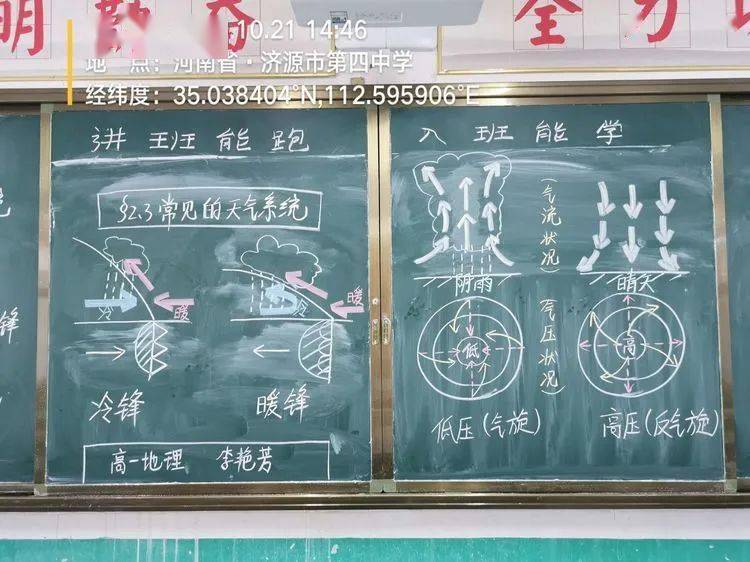 10.21 14:46
地 点：河南省·济源市第四中学
经纬度：35.038404°N,112.595906°E
讲 班 能 跑
§2.3常见的天气系统
冷 暖
冷 暖
冷锋 暖锋
高一地理 李艳芳
入 班 能 学
(气流状况)
阴雨 晴天
(气压状况)
低 高
低压(气旋) 高压(反气旋)
锋